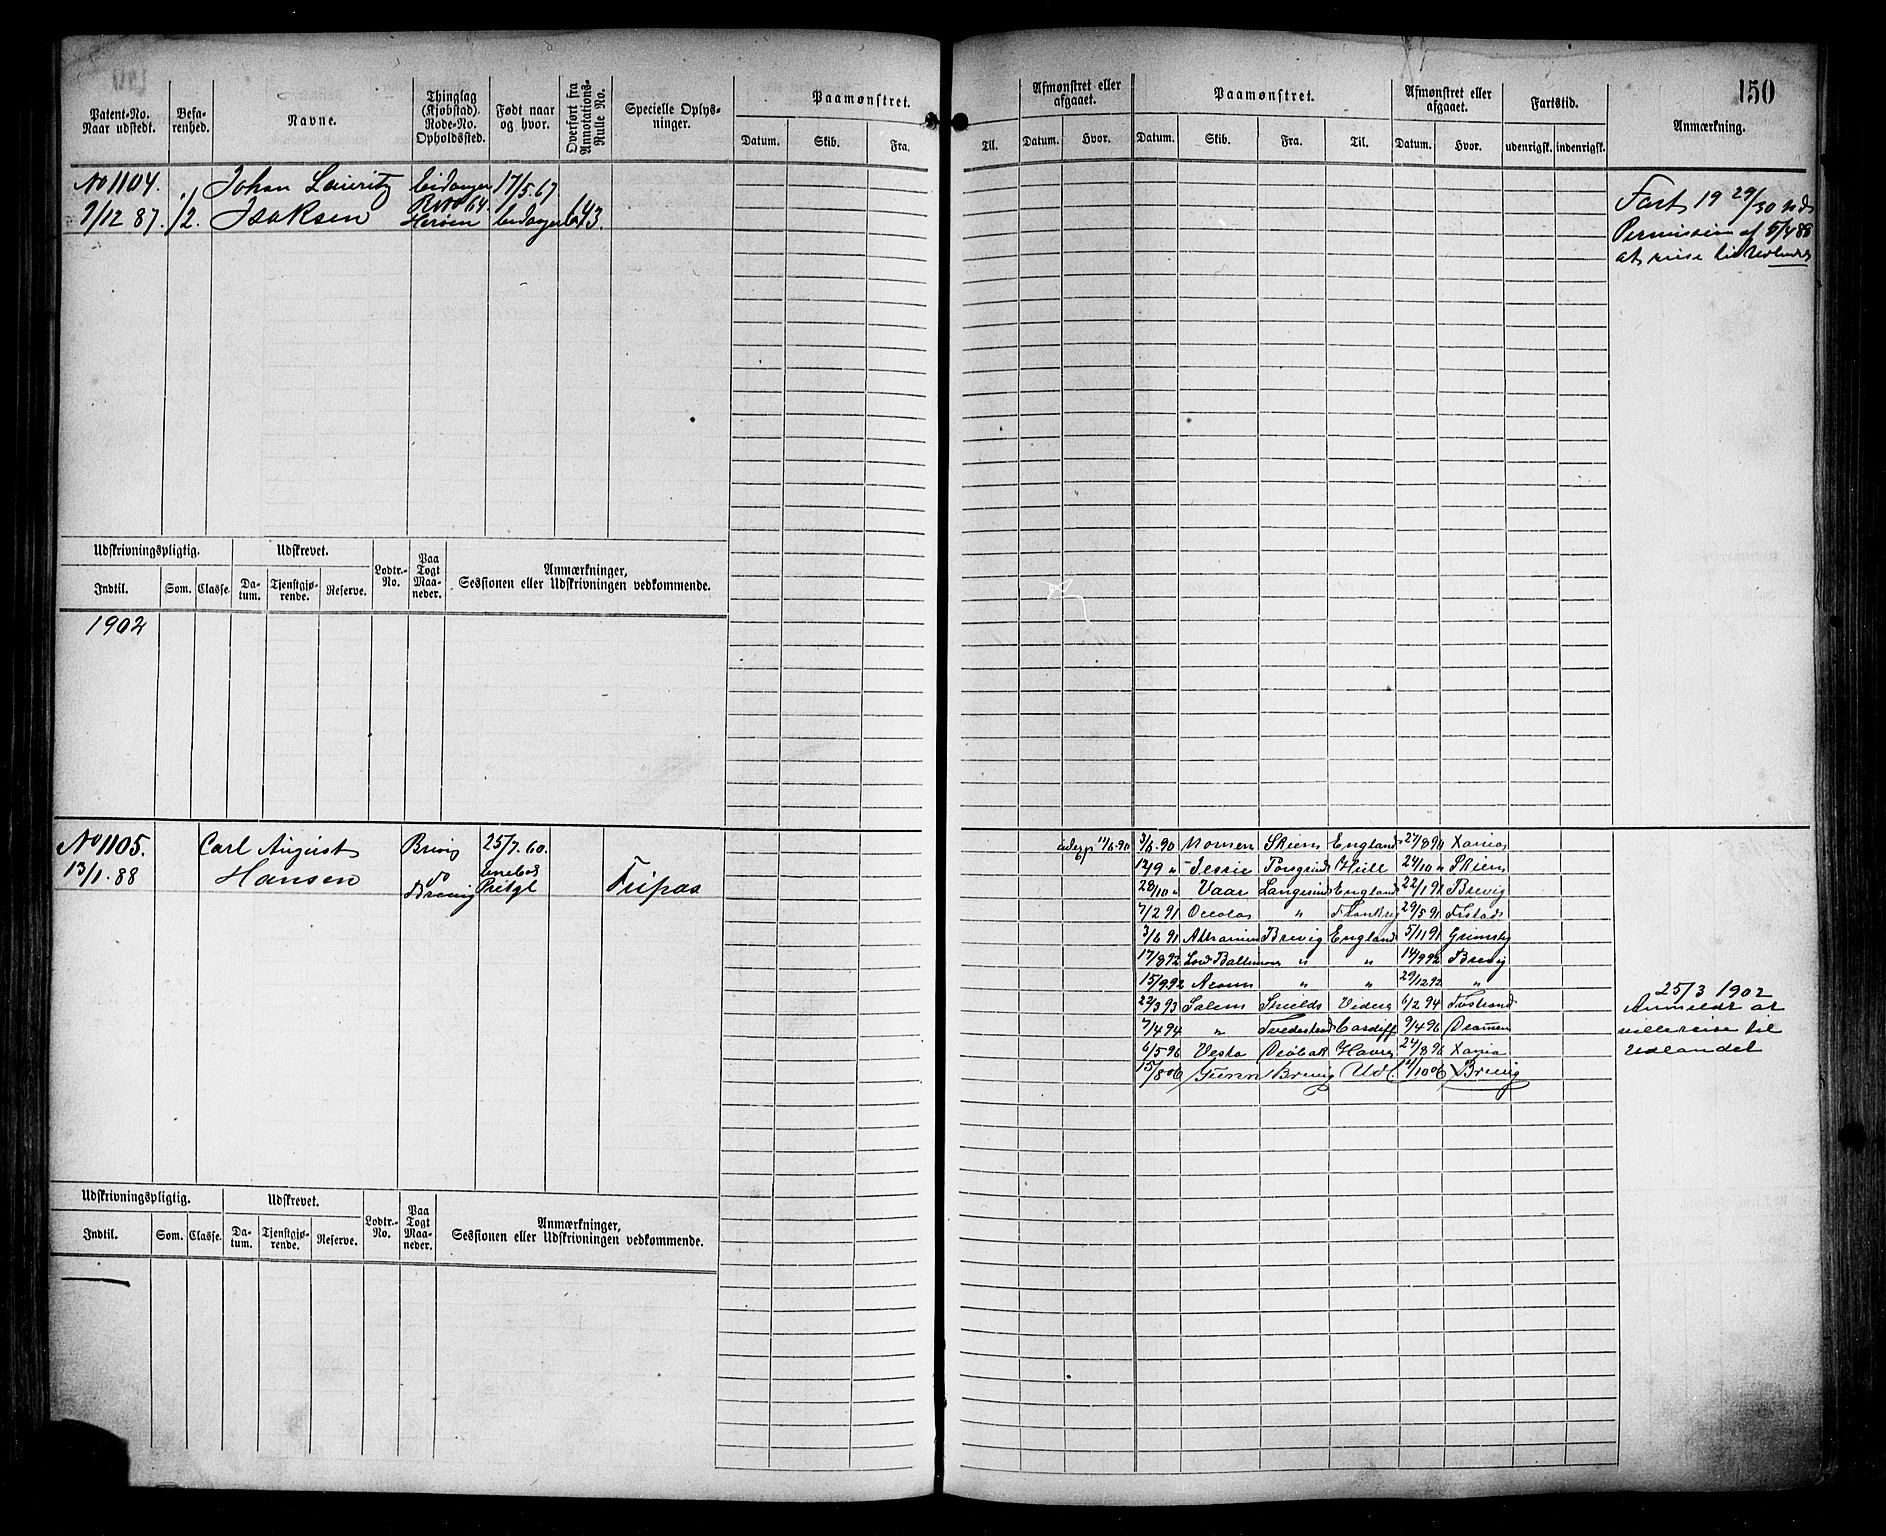 150
Patent-No. Naar udstedt.
Befarenhed.
Navne.
Thinglag (Kjøbstad). Rode-No. Opholdssted.
Født naar og hvor.
Overført fra Annotations-Rulle No.
Specielle Oplysninger.
Paamønstret.
Datum. Skib. Fra. Til.
Afmønstret eller afgaaet.
Datum. Hvor.
Paamønstret.
Datum. Skib. Fra. Til.
Afmønstret eller afgaaet.
Datum. Hvor.
Fartstid.
udenrigsk. indenrigsk.
Anmærkning.
No 1104. Johan Lauritz Eidanger 17/5.67
9/12 87. 1/2. Isaksen 64. Herøen Eidanger 643.
Fart 19 29/30
Permission af 5/4 88
at reise til Udlandet
Udskrivningspligtig. Udskrevet. Lodtr.-No. Paa Togt Maaneder. Anmærkninger, Sessionen eller Udskrivningen vedkommende.
Indtil. Som. Classe. Datum. Tjenstgjørende. Reserve.
1902
No 1105. Carl August Brevig 25/7.60.
13/1.88 Hansen do Brevig Fripas
11/6.90 3/6.90 Skien England 27/8 90 Xania
12/9 " Jessie Porsgrund Hull 24/10 " Skien
28/10 " Vaar Langesund England 22/1 91 Brevig
7/2 91 " 29/5 91 Frstad
3/6 91 Brevig England 5/11 91 Grimsby
17/8 92 Lord Baltimore " " 14/9 92 Brevig
15/9 92 " " 29/12 92 "
22/3 93 Salem Shields 6/2 94
7/4 94 " Tvedestrand Cardiff 9/4 96 Drammen
6/5 96 Vesta Drøbak Havre 24/8 96 Xania
15/8 06 Gunn Brevig Udl. /10 06 Brevig
25/3 1902
Anmeldt at
ville reise til
Udlandet
Udskrivningspligtig. Udskrevet. Lodtr.-No. Paa Togt Maaneder. Anmærkninger, Sessionen eller Udskrivningen vedkommende.
Indtil. Som. Classe. Datum. Tjenstgjørende. Reserve.